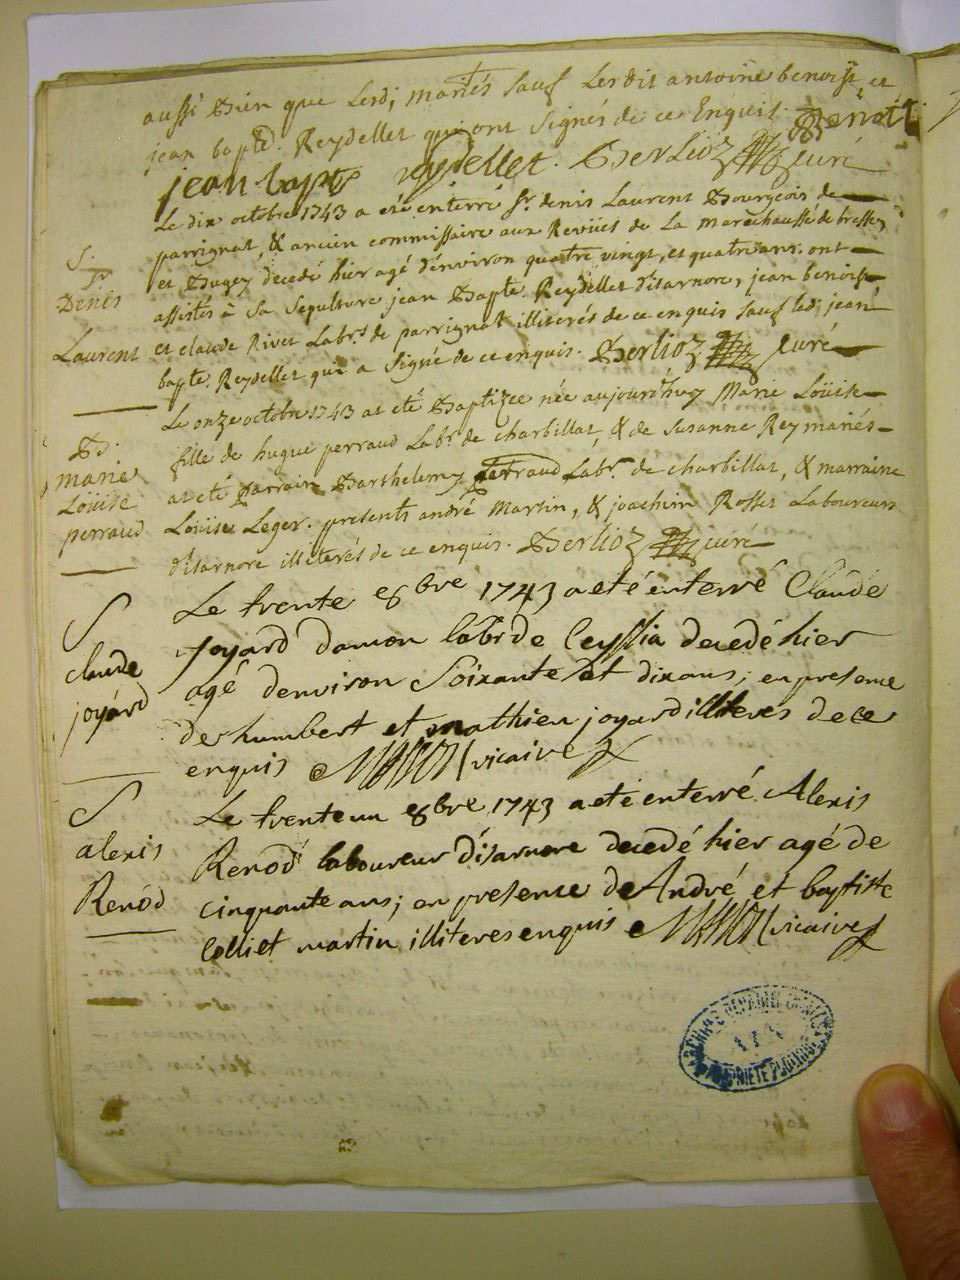 aussi bien que lesd; mariés sauf lesdit antoine benoist, et
jean bapte. Reydellet qui ont signés de ce Enquis. Benoit
jean bapte reydellet. Berlioz curé
Le dix octobre 1743 a eté enterré sr. denis Laurent Bourgeois de
parrignat, & ancien commissaire aux Reviües de La marechaussé de bresse,
et Bugey decedé hier agé d'environ quatre vingt, et quatre ans. ont
assistés à sa sepulture jean Bapte. Reydellet d'isarnore, jean benoist,
et claude Rivet Labrs. de parrignat illiterés de ce enquis sauf led; jean
bapte. Reydellet qui a signé de ce enquis. Berlioz curé
S.
Sr
Denis
Laurent
Le onze octobre 1743 at eté Baptizee née aujourd'huy Marie Loüise
fille de hugue perraud Labr. de charbillat, & de Susanne Rey mariés
at eté parrain Barthelemy perraud Labr. de charbillat, & marraine
Loüise Leger. presents andré Martin, & joachim Rosset Laboureurs
d'isarnore illiterés de ce enquis. Berlioz curé
B.
marie
Loüise
perraud
Le trente 8bre 1743 a eté enterré Claude
Joyard damon labr de Ceyssia decedé hier
agé denviron Soixante et dix ans; en presence
de humbert et mathieu joyard illiteres de ce
enquis vicaire
S
claude
joyard
Le trente un 8bre 1743 a eté enterré Alexis
Renod laboureur d'isarnore decedé hier agé de
cinquante ans; en presence de André et baptiste
Colliet martin illiteres enquis vicaire
S
alexis
Renod